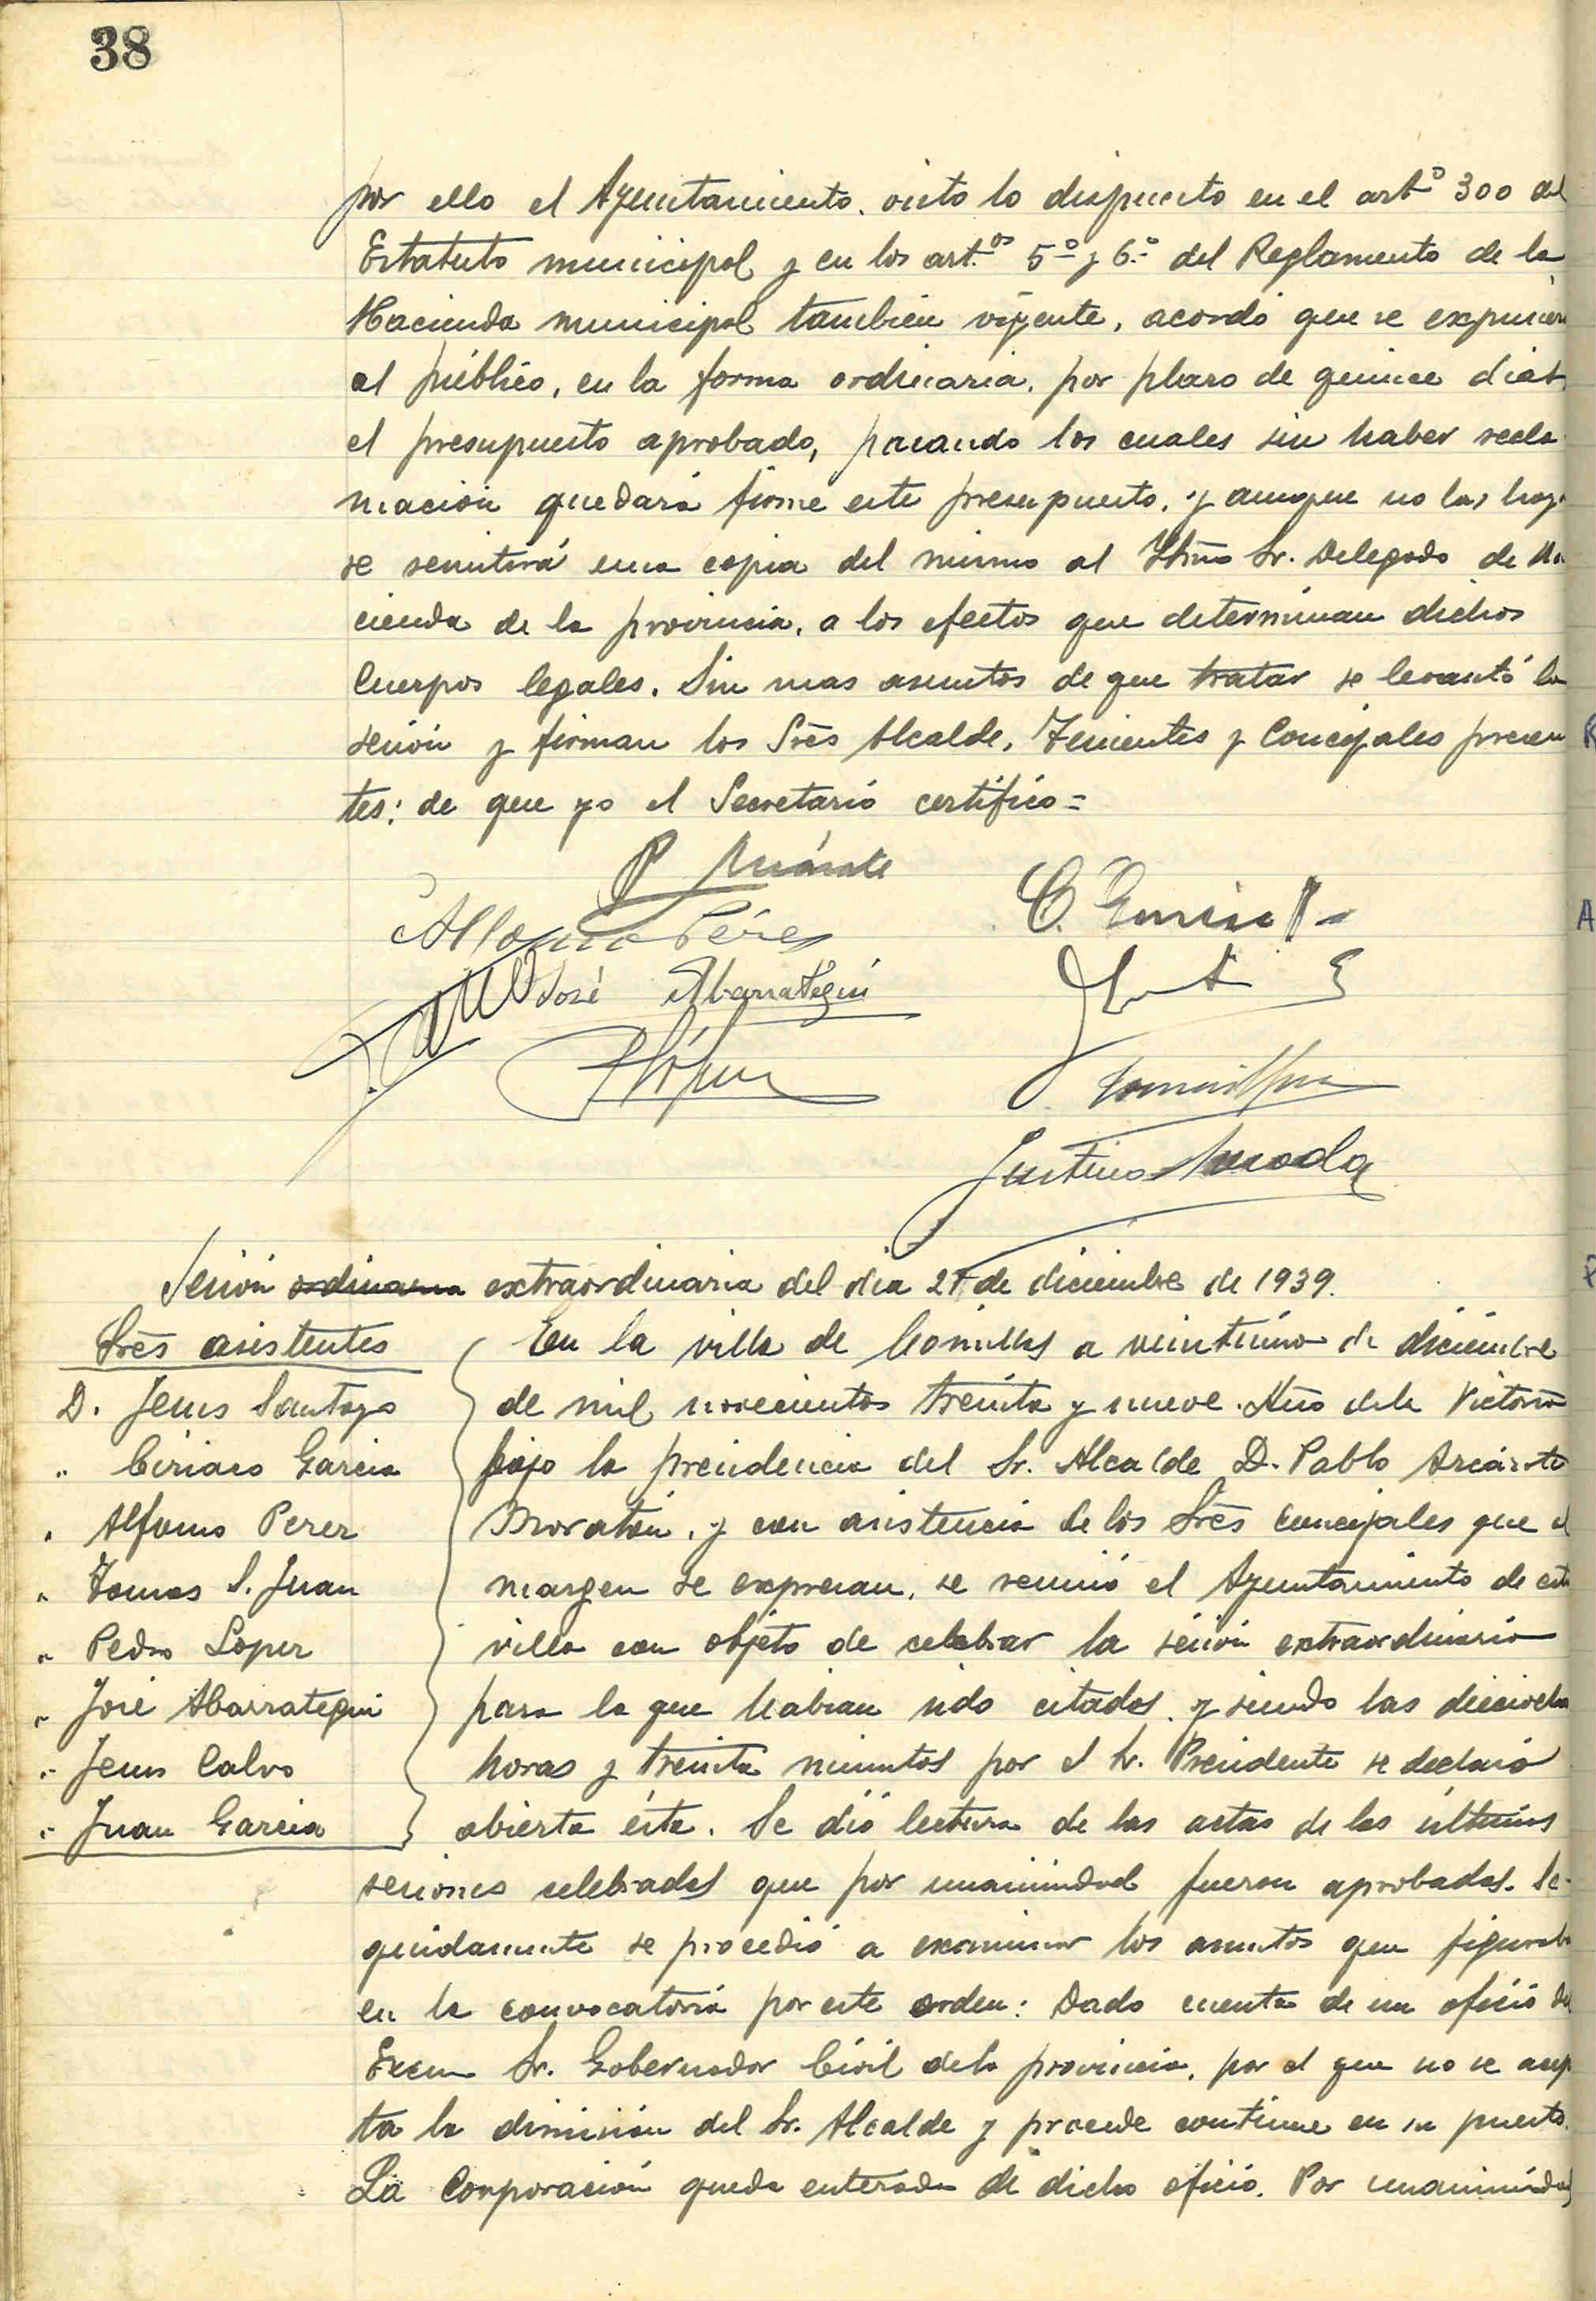 38
por ello el Ayuntamiento, visto lo dispuesto en el artº 300 del
Estatuto municipal y en los art.os 5º y 6º del Reglamento de la
Hacienda municipal tambien vigente, acordó que se expusiera
al público, en la forma ordinaria, por plazo de quince dias,
el presupuesto aprobado, pasando los cuales sin haber recla
mación quedará firme este presupuesto, y aunque no las haya
se remitirá una copia del mismo al Iltmo Sr. Delegado de Ha
cienda de la provincia, a los efectos que determinan dichos
Cuerpos legales. Sin mas asuntos de que tratar se levantó la
sesión y firman los Sres Alcalde, Tenientes y Concejales presen
tes; de que yo el Secretario certifico=
P Arzárate
Alfonso Pérez
José Abarrategui
P López
Justino
Sesión ordinaria extraordinaria del dia 21 de diciembre de 1939.
Sres asistentes
D. Jesus Santoyo
" Ciriaco Garcia
" Alfonso Perez
" Tomas S. Juan
" Pedro Lopez
" José Abarrategui
" Jesus Calvo
" Juan Garcia
En la villa de Comillas a veintiuno de diciembre
de mil novecientos treinta y nueve. Año de la Victoria
bajo la presidencia del Sr. Alcalde D. Pablo Arzárate
Moratón, y con asistencia de los Sres Concejales que al
margen se expresan, se reunió el Ayuntamiento de esta
villa con objeto de celebrar la sesión extraordinaria
para la que habian sido citados, y siendo las dieciocho
horas y treinta minutos por el Sr. Presidente se declaró
abierta ésta. Se dió lectura de las actas de las últimas
sesiones celebradas que por unanimidad fueron aprobadas. Se-
guidamente se procedió a examinar los asuntos que figuraban
en la convocatoria por este orden: Dado cuenta de un oficio del
Excmo Sr. Gobernador Civil de la provincia, por el que no se acep
ta la dimisión del Sr. Alcalde y procede continue en su puesto.
La Corporación queda enterada de dicho oficio. Por unanimidad